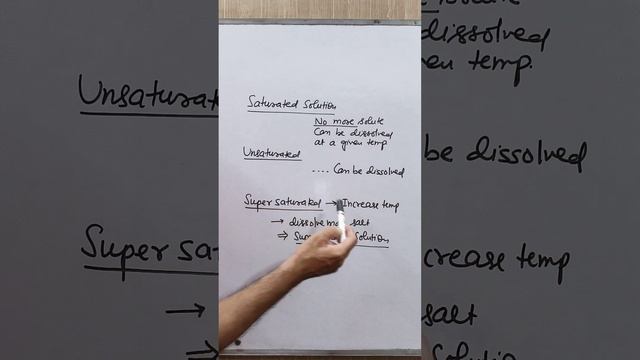 Saturated Solution
No more solute
Can be dissolved
at a given temp
Unsaturated
.... Can be dissolved
Super saturated → Increase temp
→ dissolve more salt
⇒ Solution